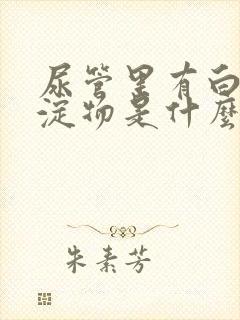 尿管里有白
淀物是什麼
朱素芳